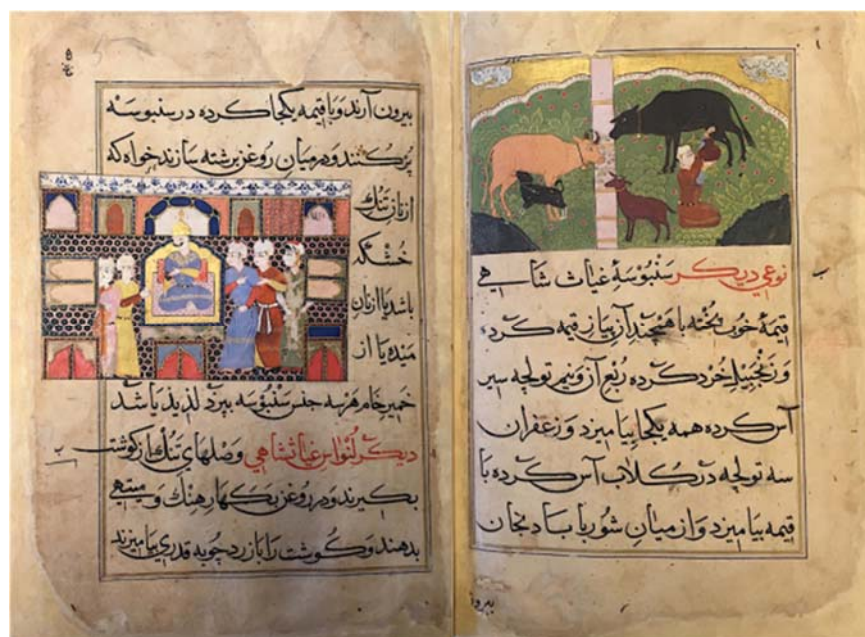 نوعي ديكر سنبوسهٔ غياث شاهي
قيمهٔ خوب پخته با همچندآن پياز قيمه كرده
و زنجبيل خرد كرده ربع آن و نيم تولچه سير
آس كرده همه يكجا بياميزد و زعفران
سه تولچه در كلاب آس كرده با
قيمه بياميزد و از ميان شوربا بادنجان
بيرون
بيرون آرند و با قيمه يكجا كرده در سنبوسه
پر كنند و در ميان روغن برشته سازند خواه كه
از نان تنك
خشكه
باشد يا از نان
ميده يا از
خمير خام هر سه جنس سنبوسه بپزد لذيذ باشد
ديكر غياثشاهي وصلهاي تنك از كوشت
بكيرند و در روغن بكهار هنك و ميتهي
بدهند و كوشت را با زردچوبه قدري بياميزند